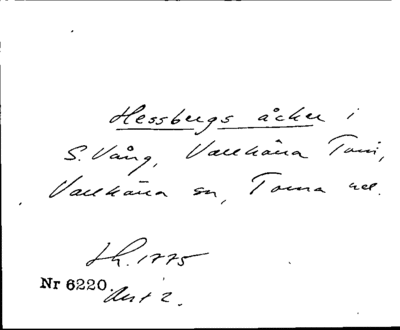 Hessbergs åcker i
S. Vång, Vallkärra Tom,
Vallkärra sn, Torna hd.
Lh. 1775
Nr 6220.
Akt 2.